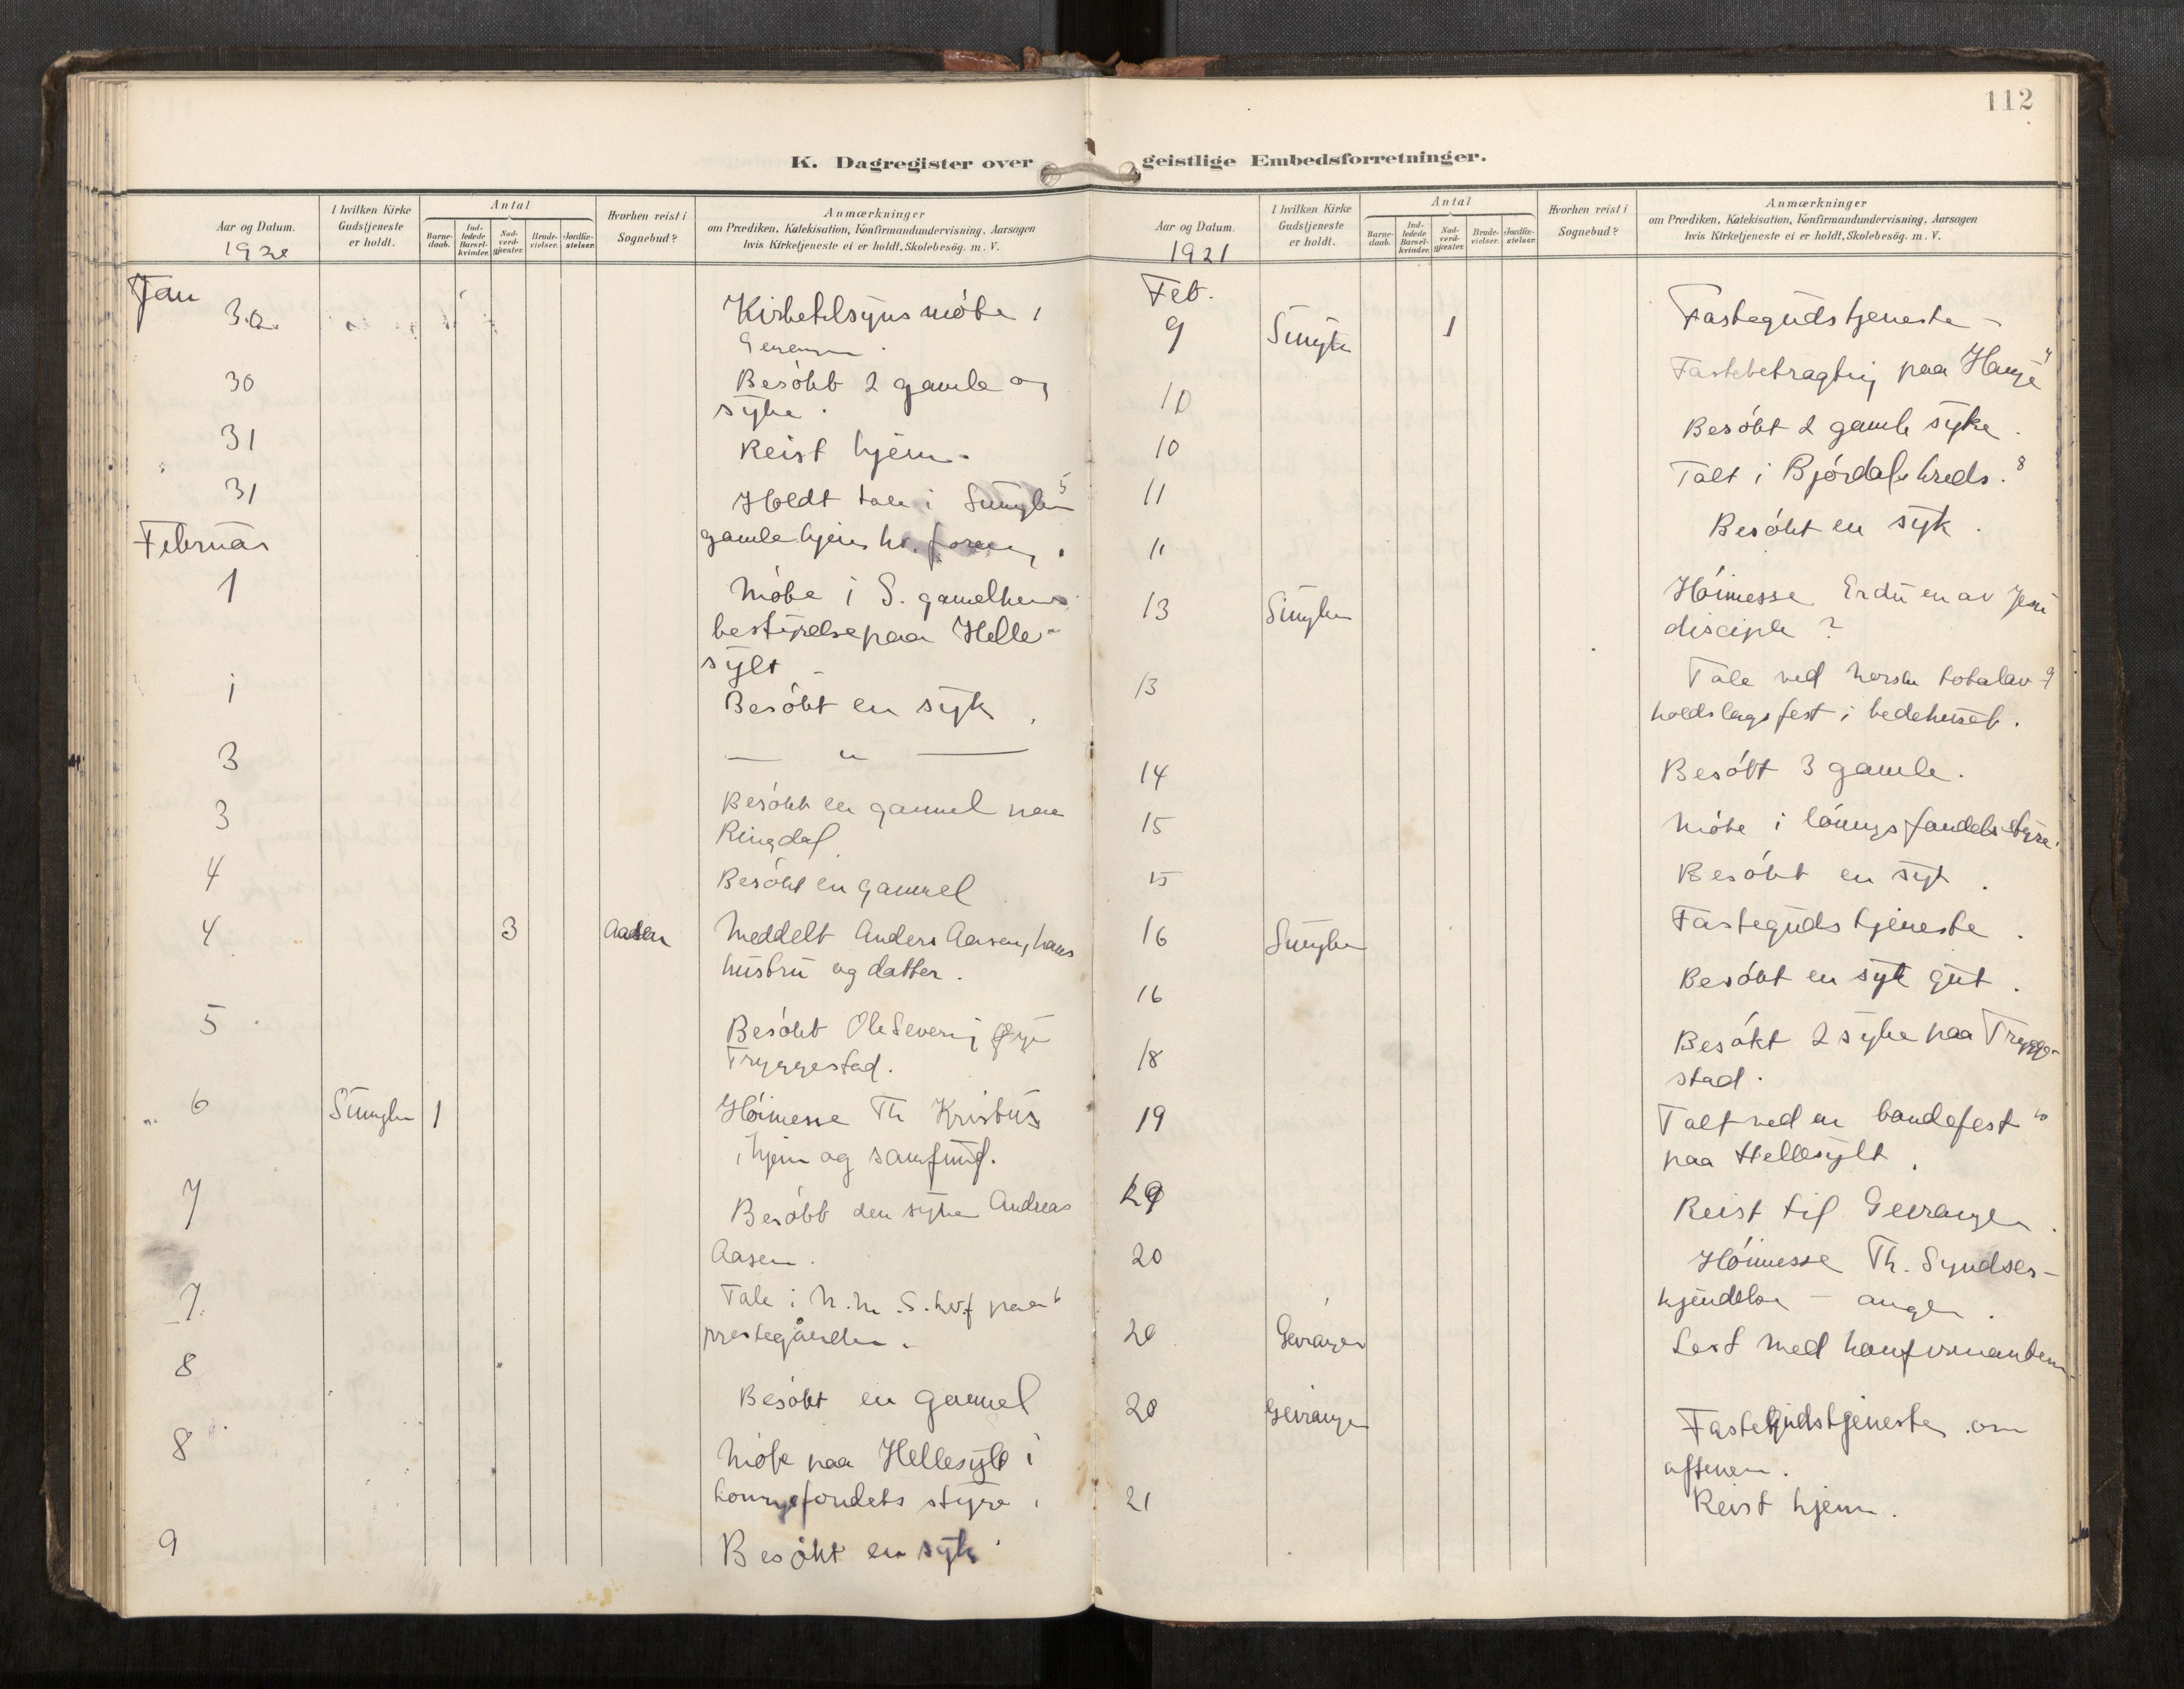 112
K. Dagregister over geistlige Embedsforretninger.
Aar og Datum.
I hvilken Kirke Gudstjeneste er holdt.
Antal
Barne-daab.
Ind-ledede Barsel-kvinder.
Nad-verd-gjæster.
Brude-vielser.
Jordfæ-stelser.
Hvorhen reist i Sognebud?
Anmærkninger
om Prædiken, Katekisation, Konfirmandundervisning, Aarsagen
hvis Kirketjeneste ei er holdt, Skolebesøg. m. V.
Jan
30. Kirketilsynsmöte i
30 Besökt 2 gamle og
syke.
31 Reist hjem.
31 Holdt tale i Sunylven 5
gamlehjems kv. foren
Februar
1 Möte i S. gamelhems
bestyrelse paa Helle-
sylt
1 Besökt en syk
3 — " —
3 Besökt en gammel paa
Ringdal
4 Besökt en gammel
4 3 Aasen Meddelt Anders Aasen, hans
hustru og datter.
5 Besökt Ole Severin
Tryggestad.
6 Sunylven 1 Höimesse Th Kristus
i hjem og samfund.
7 Besökt den syke Andreas
Aasen.
7. Tale i N. M. S. kvf paa 6
prestegården.
8 Besökt en gammel
8 Möte paa Hellesylt i
fondets styre
9 Besökt en syk
Aar og Datum.
1921
I hvilken Kirke Gudstjeneste er holdt.
Antal
Barne-daab.
Ind-ledede Barsel-kvinder.
Nad-verd-gjæster.
Brude-vielser.
Jordfæ-stelser.
Hvorhen reist i Sognebud?
Anmærkninger
om Prædiken, Katekisation, Konfirmandundervisning, Aarsagen
hvis Kirketjeneste ei er holdt, Skolebesøg. m. V.
Feb.
9 Sunylven 1 Fastegudstjeneste –
10 Fastebetragtning paa Hauge
10 Besökt 2 gamle syke.
11 Talt i Bjørdals kreds. 8
11 Besökt en syk.
13 Sunylven Höimesse Er du en av Jesu
disciple?
13 Tale ved norske totalav- 9
holdslags fest i bedehuset.
14 Besökt 3 gamle.
15 Möte i fondets styre.
15 Besökt en syk.
16 Sunylven Fastegudstjeneste.
16 Besökt en syk gut.
18 Besökt 2 syke paa Trygge-
stad.
19 Talt ved en bondefest 10
paa Hellesylt
Reist til Geiranger.
20 Höimesse Th. Syndser-
kjendelse – anger.
20 Geiranger Lest med konfirmantene
20 Geiranger Fastegudstjeneste om
aftenen.
21 Reist hjem.